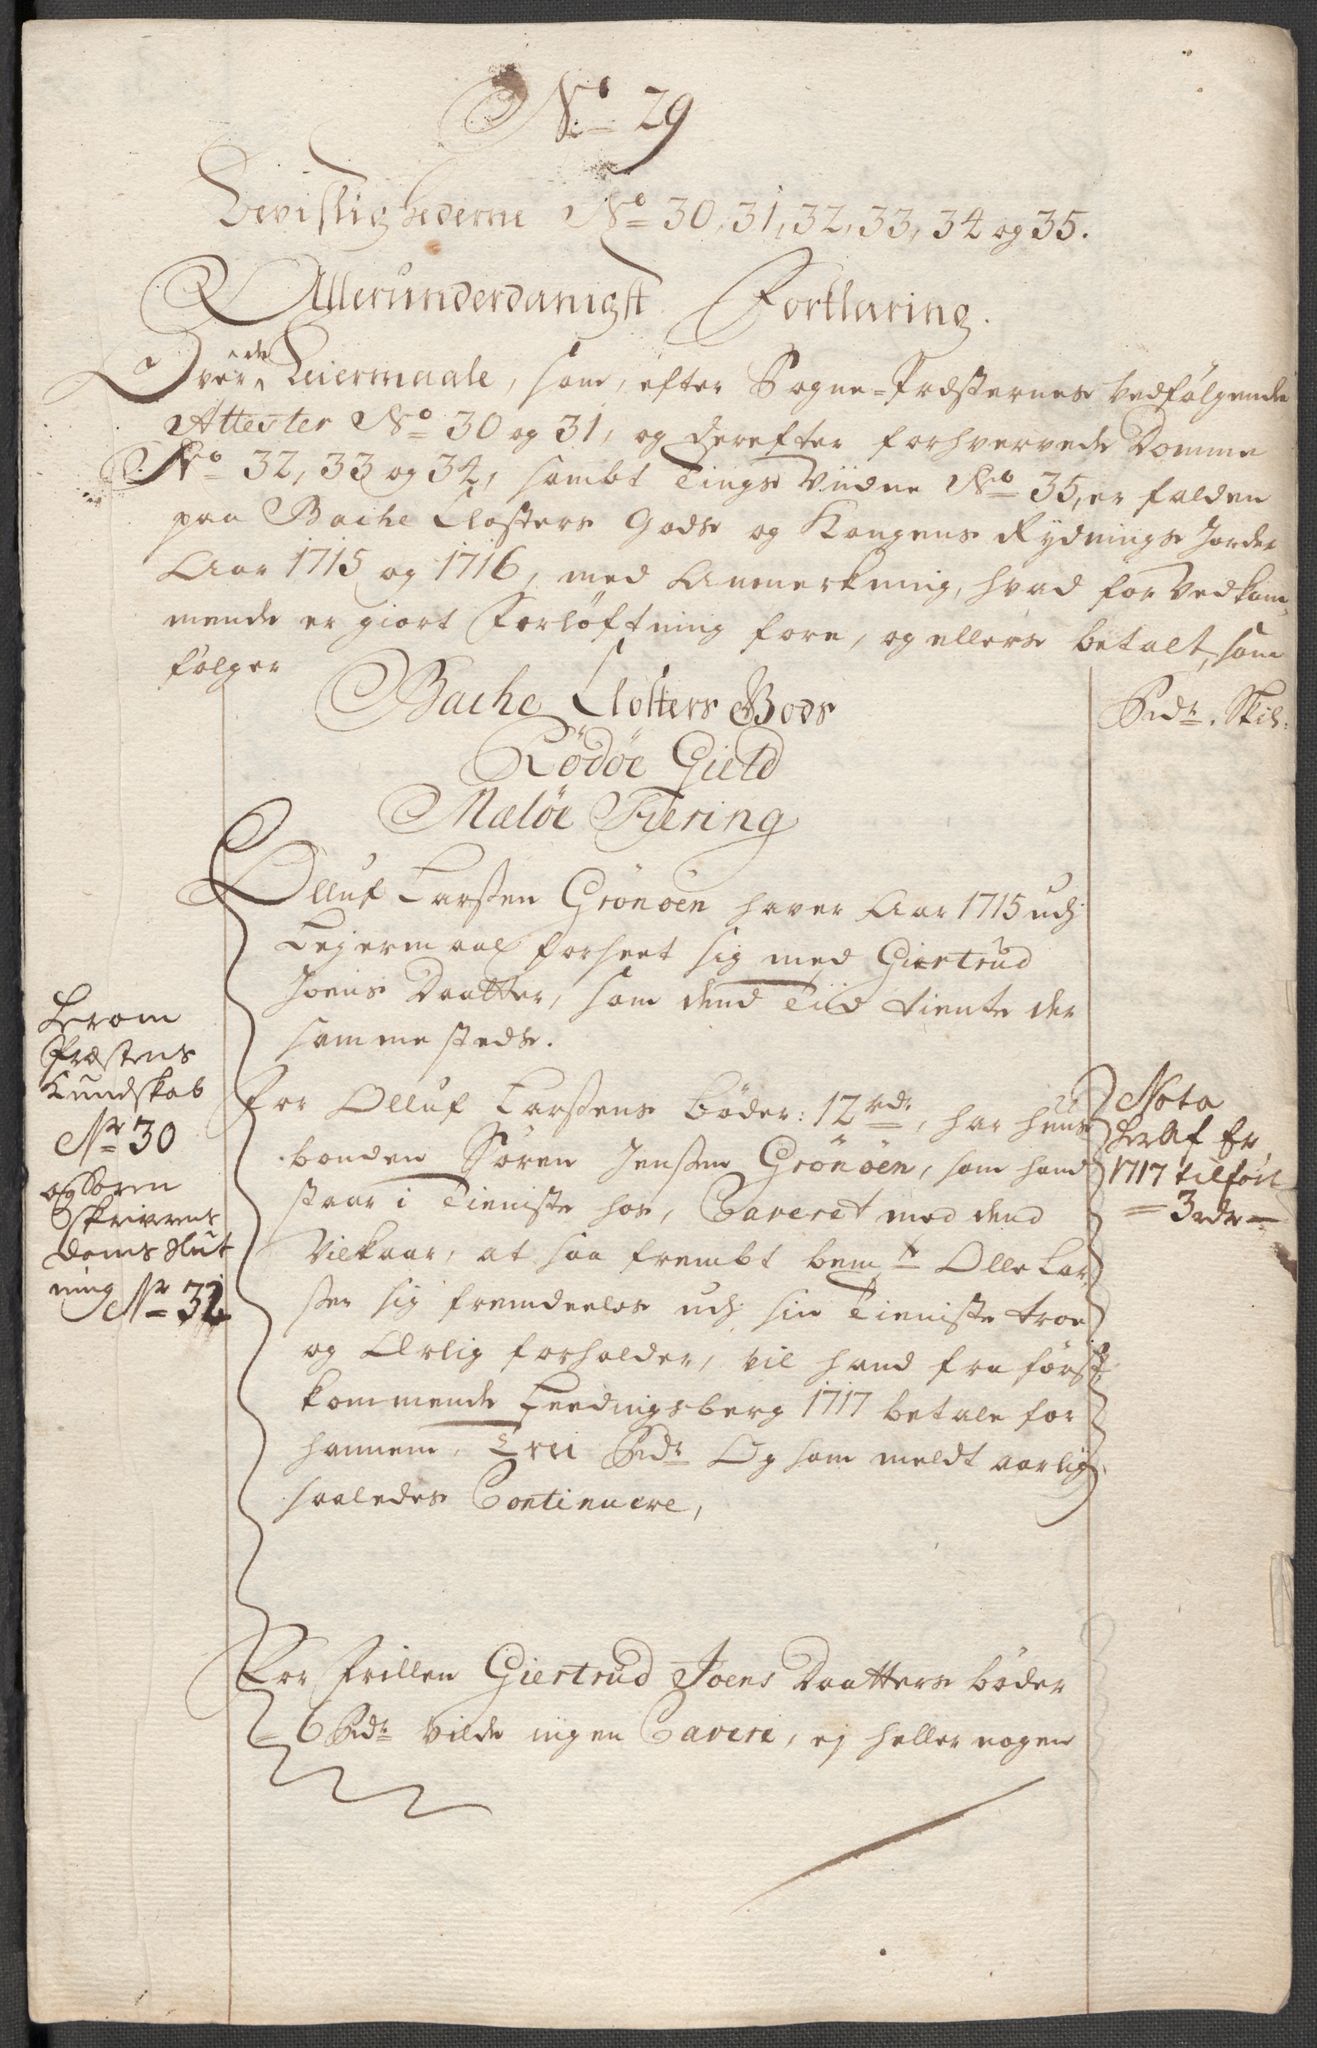 No 29
Bevislighederne No 30, 31, 32, 33, 34 og 35.
Allerunderdanigst Forklaring.
Over de Leiermaale, som, efter Sogne=Præsternes vedfølgende
Attester No 30 og 31, og derefter forhvervede Domme
No 32, 33 og 34, sambt Tings Vidne No 35, er falden
paa Bache Closters Gods og Kongens Rydnings Jorder
Aar 1715 og 1716, med Anmerkning, hvad for vedkom,,
mende er giort Forløftning fore, og ellers betalt, som
følger
Bache Closters Gods
Rdr. Skil:
Rödöe Gield
Meløe Fiering
Olluf Larsen Grönöen haver Aar 1715 udj
Lejermaal forseet sig med Giertrud
Joens Daatter, som dend Tiid tiente der
samme steds.
Herom
Præstens
Kundskab
No 30
og Soren
skrivrens
doms Slut
ning No 32
For Olluf Larsens bøder: 12 rdr, har huus
bonden Søren Jensen Grönöen, som hand
staar i Tieniste hos, Caveret med dend
Vilkaar, at saa frembt bemte Olle Lar
sen sig fremdeelss udj sin Tieniste troe
og Ærlig forholder, vil hand fra først
kommende Leedingsberg 1717 betale for
hannem, Trei Rdr Og som meldt aarlig
saaledes Continuere,
Nota
heraf Er
1717 tilført
= 3 rdr =
For Frillen Giertrud Joens Daatters bøder
6 Rdr vilde ingen Cavere, ej heller nogen